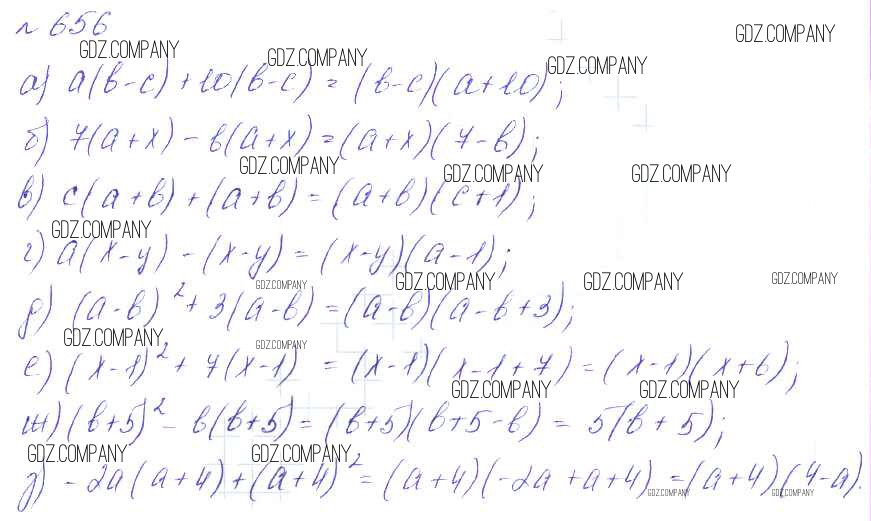 № 656
GDZ.COMPANY GDZ.COMPANY GDZ.COMPANY GDZ.COMPANY
а) a(b-c)+10(b-c) = (b-c)(a+10);
б) 7(a+x) - b(a+x) = (a+x)(7-b);
GDZ.COMPANY GDZ.COMPANY GDZ.COMPANY
в) c(a+b)+(a+b) = (a+b)(c+1);
GDZ.COMPANY
г) a(x-y) - (x-y) = (x-y)(a-1);
GDZ.COMPANY GDZ.COMPANY GDZ.COMPANY GDZ.COMPANY
д) (a-b)² + 3(a-b) = (a-b)(a-b+3);
GDZ.COMPANY GDZ.COMPANY
е) (x-1)² + 7(x-1) = (x-1)(x-1+7) = (x-1)(x+6);
GDZ.COMPANY GDZ.COMPANY
ж) (b+5)² - b(b+5) = (b+5)(b+5-b) = 5(b+5);
GDZ.COMPANY GDZ.COMPANY
з) -2a(a+4)+(a+4)² = (a+4)(-2a+a+4) = (a+4)(4-a).
GDZ.COMPANY GDZ.COMPANY